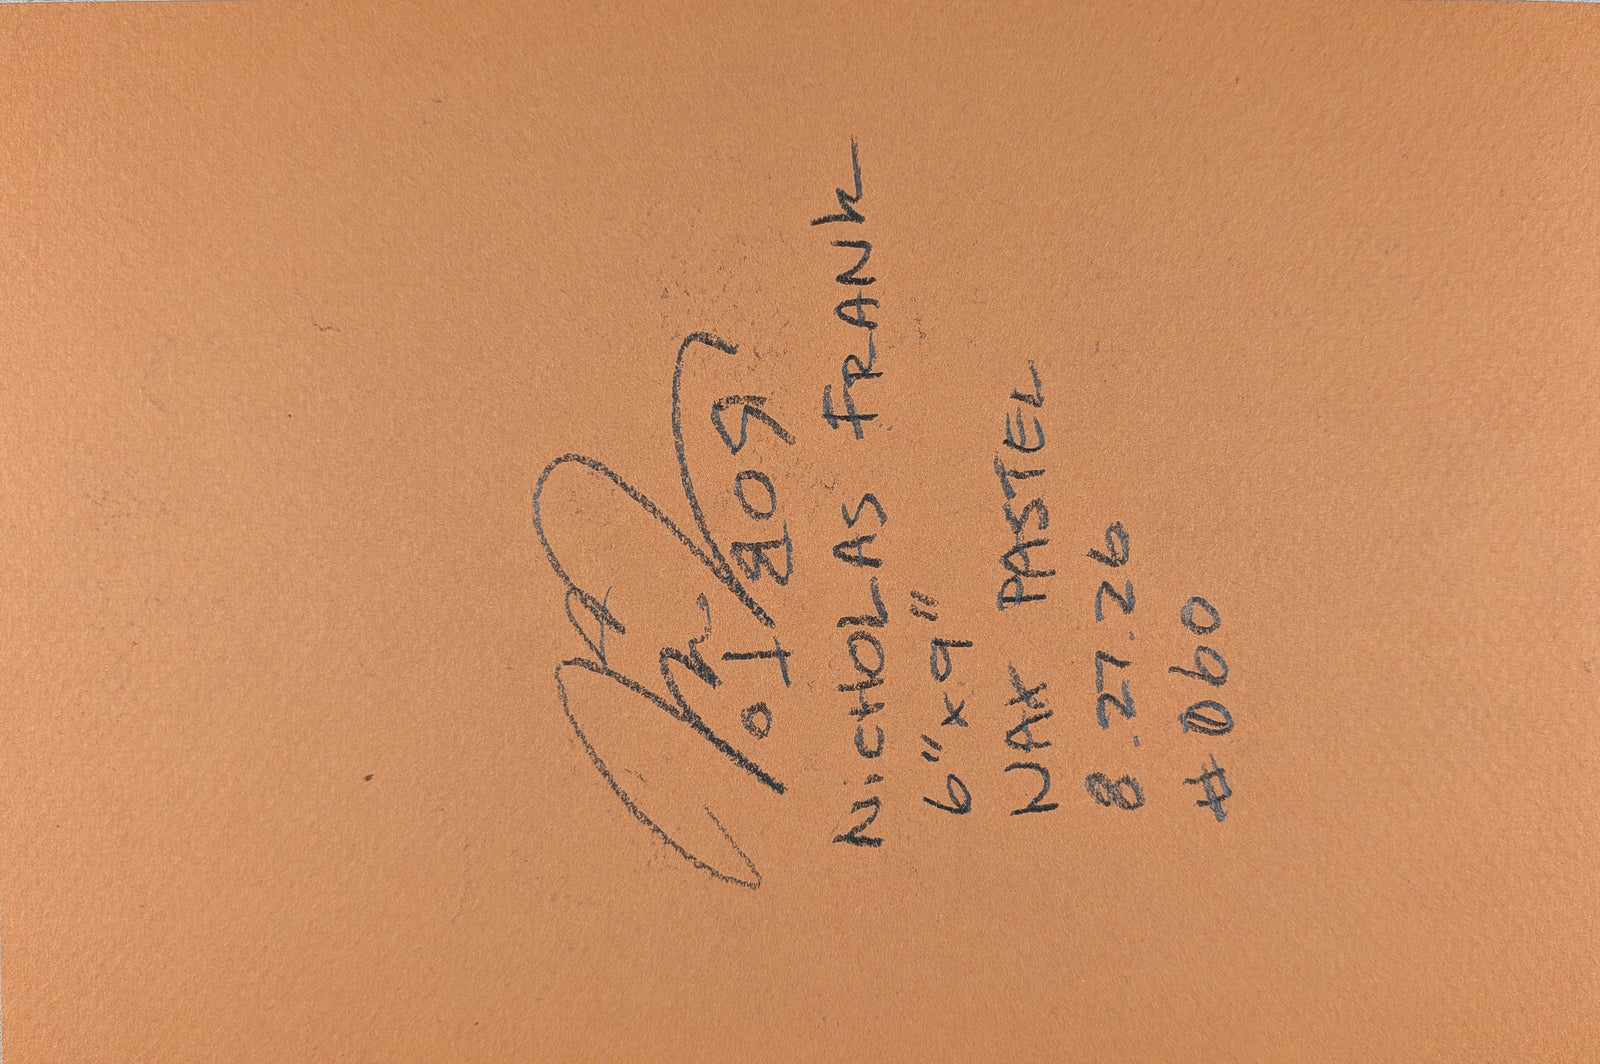 NICHOLAS FRANK
6"x9"
WAX PASTEL
8.27.26
#060